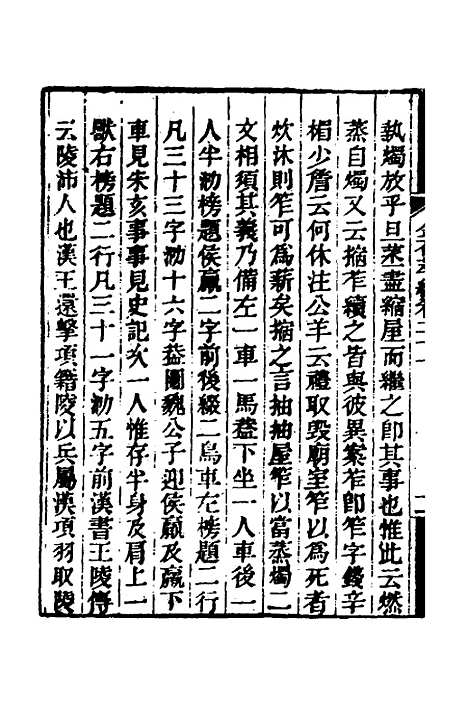 執燭放乎旦蒸盡縮屋而繼之卽其事也惟此云燃
蒸自燭又云搚笮續之皆與彼異案笮卽笮字錢辛
楣少詹云何休注公羊云禮取毀廟室笮以為死者
炊沐則笮可為薪矣搚之言抽抽屋笮以當蒸燭二
文相須其義乃備左一車一馬葢下坐一人車後一
人半泐榜題侯嬴二字前後綴二鳥車左榜題二行
凡三十三字泐十六字葢圖魏公子迎侯嬴及嬴下
車見朱亥事事見史記次一人惟存半身及肩上一
獸右榜題二行凡三十一字泐五字前漢書王陵傳
云陵沛人也漢王還擊項籍陵以兵屬漢項羽取陵